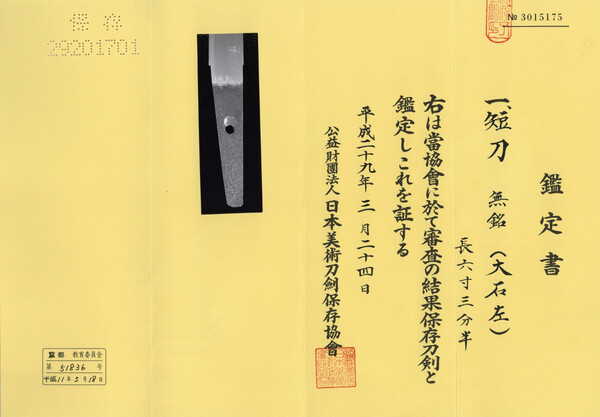 № 3015175
鑑定書
一、短刀 無銘(大石左)
長六寸三分半
右は當協會に於て審査の結果保存刀剣と
鑑定しこれを証する
平成二十九年三月二十四日
公益財團法人 日本美術刀劍保存協會
保存
29201701
京都 教育委員会
第 51836 号
平成11年5月18日